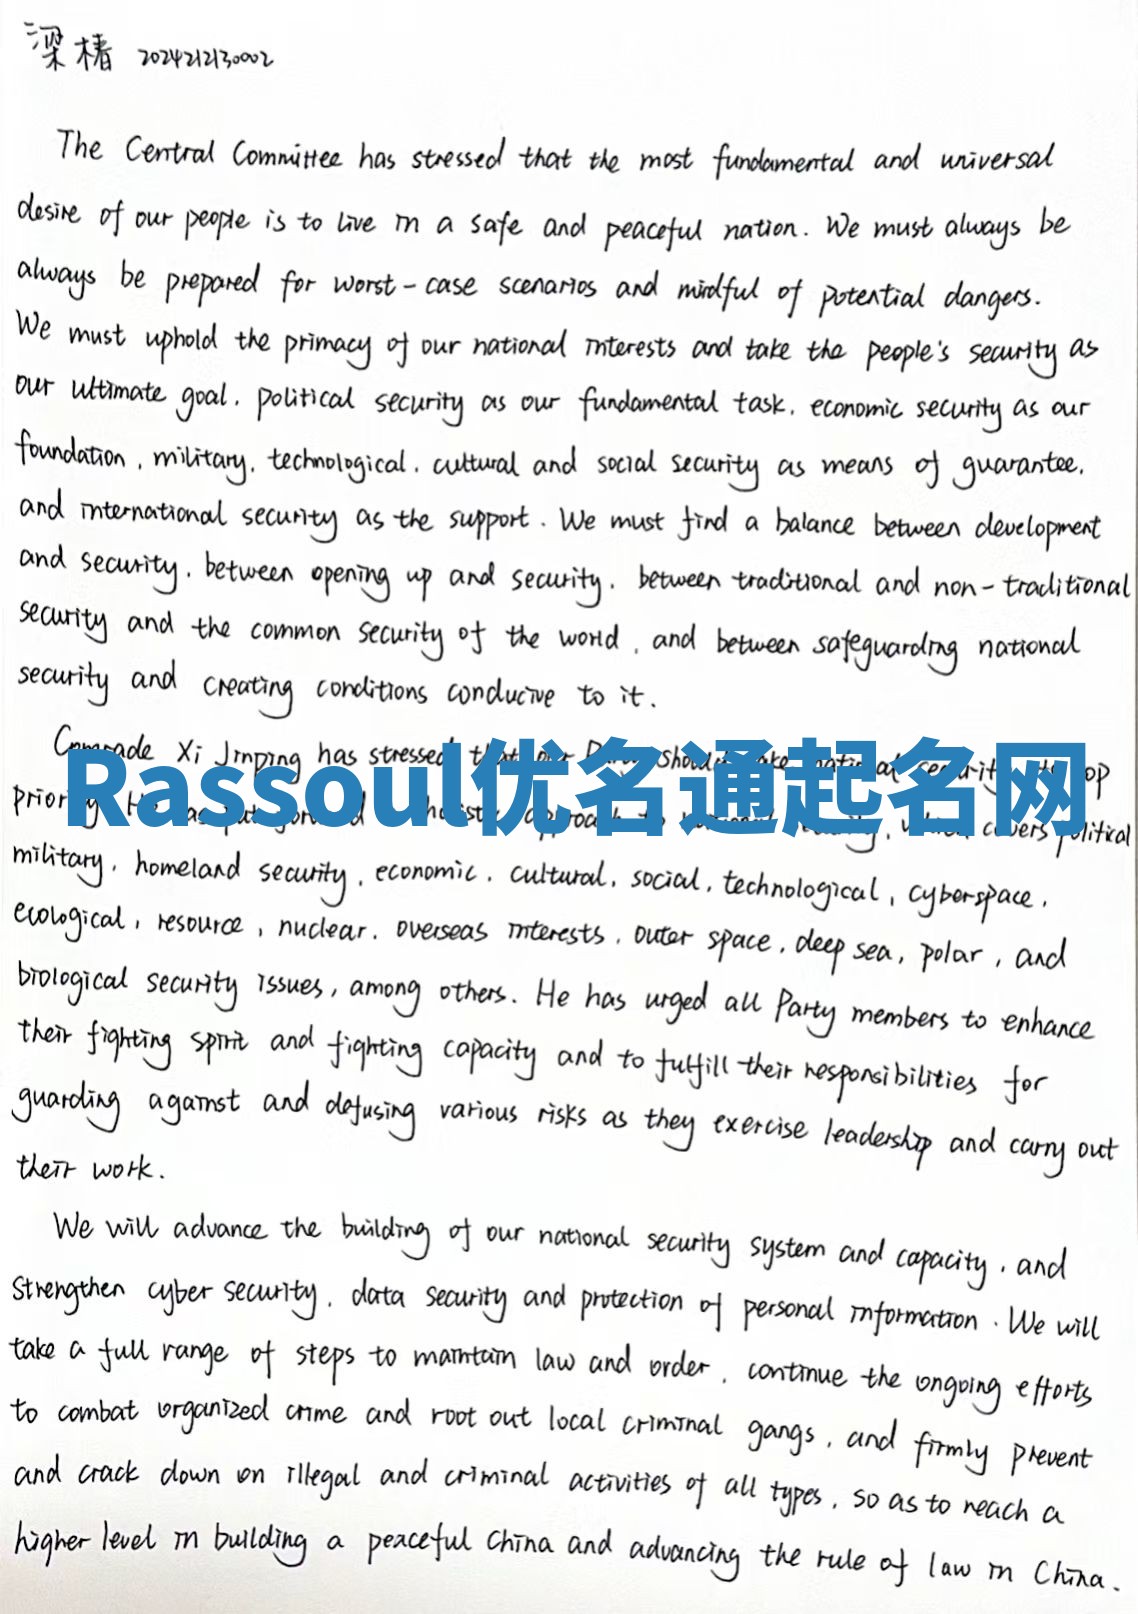 梁椿 2024212130002
The Central Committee has stressed that the most fundamental and universal
desire of our people is to live in a safe and peaceful nation. We must always be
always be prepared for worst-case scenarios and mindful of potential dangers.
We must uphold the primacy of our national interests and take the people's security as
our ultimate goal, political security as our fundamental task, economic security as our
foundation, military, technological, cultural and social security as means of guarantee,
and international security as the support. We must find a balance between development
and security, between opening up and security, between traditional and non-traditional
security and the common security of the world, and between safeguarding national
security and creating conditions conducive to it.
Comrade Xi Jinping has stressed that our Party should take national security its top
Rassoul优名通起名网
priority. He has put forward holistic approach to national security, which covers political
military, homeland security, economic, cultural, social, technological, cyberspace,
ecological, resource, nuclear, overseas interests, outer space, deep sea, polar, and
biological security issues, among others. He has urged all Party members to enhance
their fighting spirit and fighting capacity and to fulfill their responsibilities for
guarding against and defusing various risks as they exercise leadership and carry out
their work.
We will advance the building of our national security system and capacity, and
strengthen cyber security, data security and protection of personal information. We will
take a full range of steps to maintain law and order, continue the ongoing efforts
to combat organized crime and root out local criminal gangs, and firmly prevent
and crack down on illegal and criminal activities of all types, so as to reach a
higher level in building a peaceful China and advancing the rule of law in China.